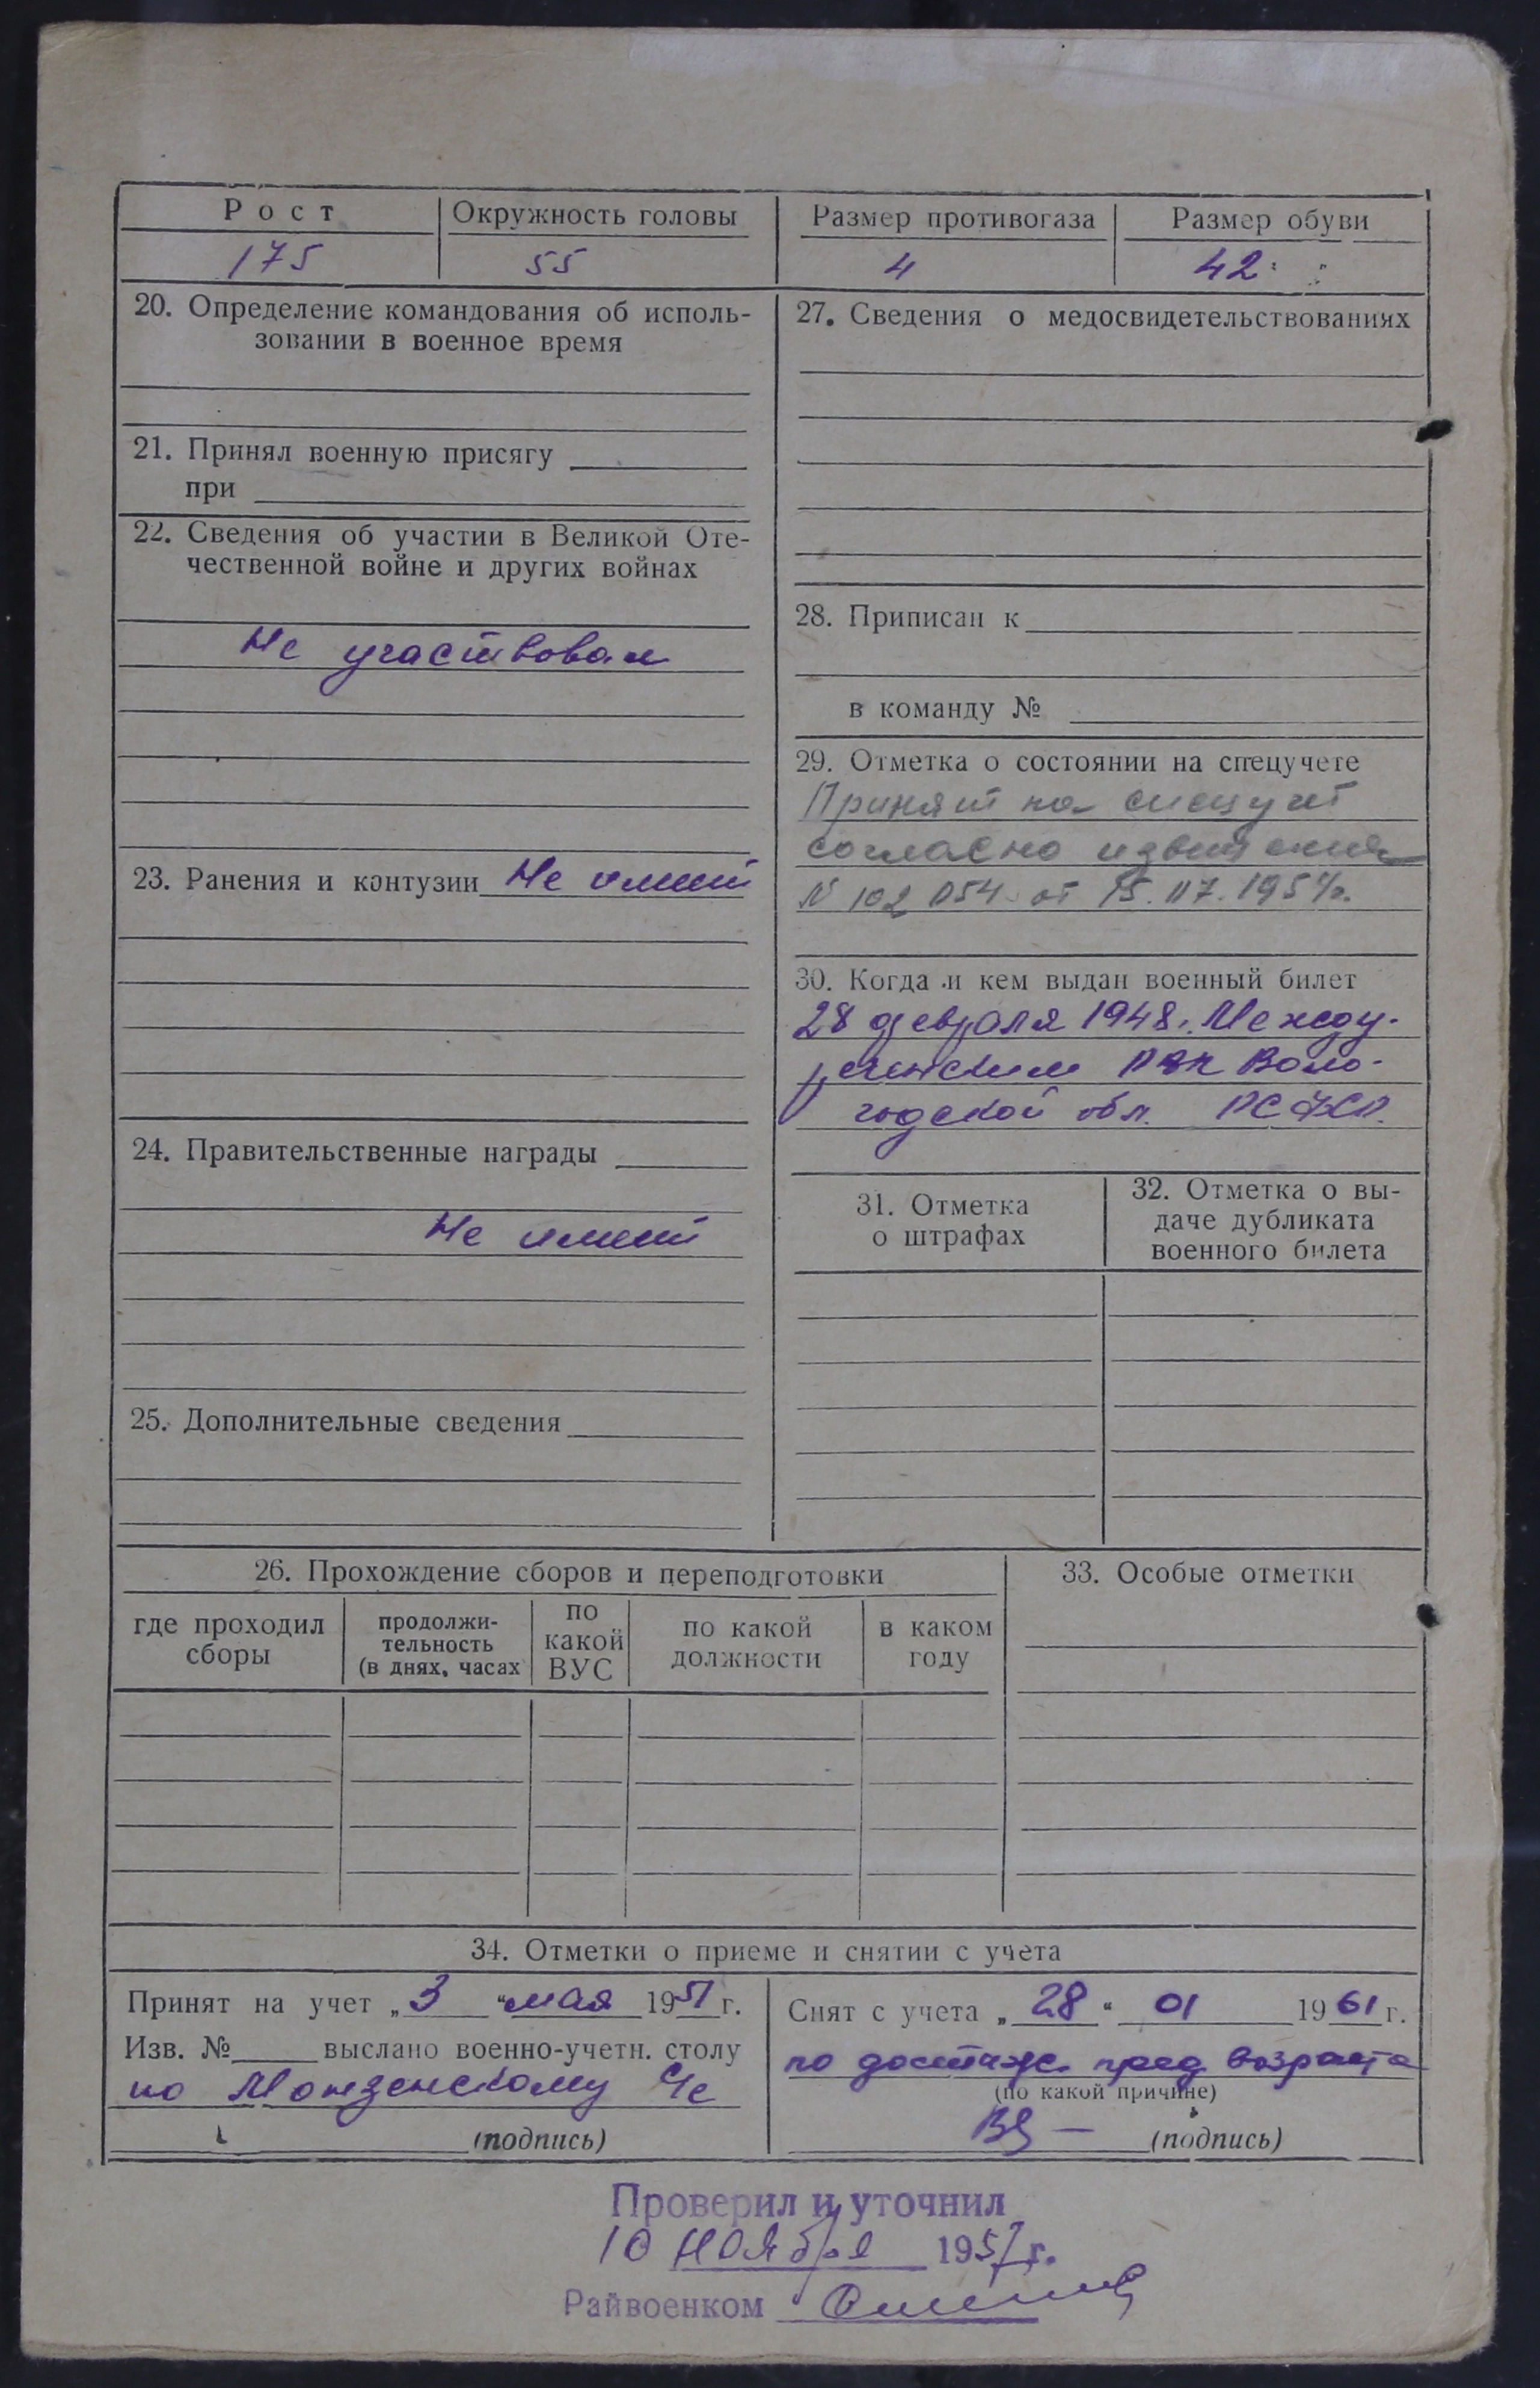 Рост
Окружность головы
Размер противогаза
Размер обуви
175
55
4
42
20. Определение командования об исполь-
зовании в военное время
21. Принял военную присягу
при
22. Сведения об участии в Великой Оте-
чественной войне и других войнах
Не участвовал
23. Ранения и контузии Не имеет
24. Правительственные награды
Не имеет
25. Дополнительные сведения
27. Сведения о медосвидетельствованиях
28. Приписан к
в команду №
29. Отметка о состоянии на спецучете
Принят на спецучет
согласно извещения
N 102054 от 15.07.1954г.
30. Когда и кем выдан военный билет
28 февраля 1948. Между-
реченским РВК Воло-
годской обл. РСФСР.
31. Отметка
о штрафах
32. Отметка о вы-
даче дубликата
военного билета
26. Прохождение сборов и переподготовки
где проходил
сборы
продолжи-
тельность
(в днях, часах
по
какой
ВУС
по какой
должности
в каком
году
33. Особые отметки
34. Отметки о приеме и снятии с учета
Принят на учет „3“ мая 1951 г.
Изв. № выслано военно-учетн. столу
по Монзенскому
(подпись)
Снят с учета „28“ 01 1961 г.
по достиж. пред возраста
(по какой причине)
(подпись)
Проверил и уточнил
10 ноября 1957 г.
Райвоенком